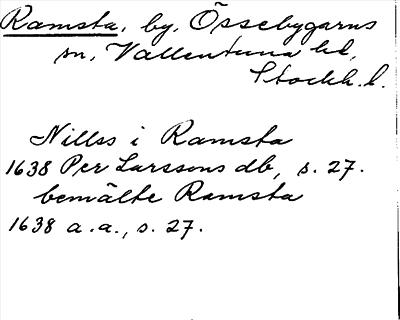 Ramsta, by, Össebygarns
sn, Vallentuna hd,
Stockh. l.
Nillss i Ramsta
1638 Per Larssons db, s. 27.
bemälte Ramsta
1638 a.a., s. 27.